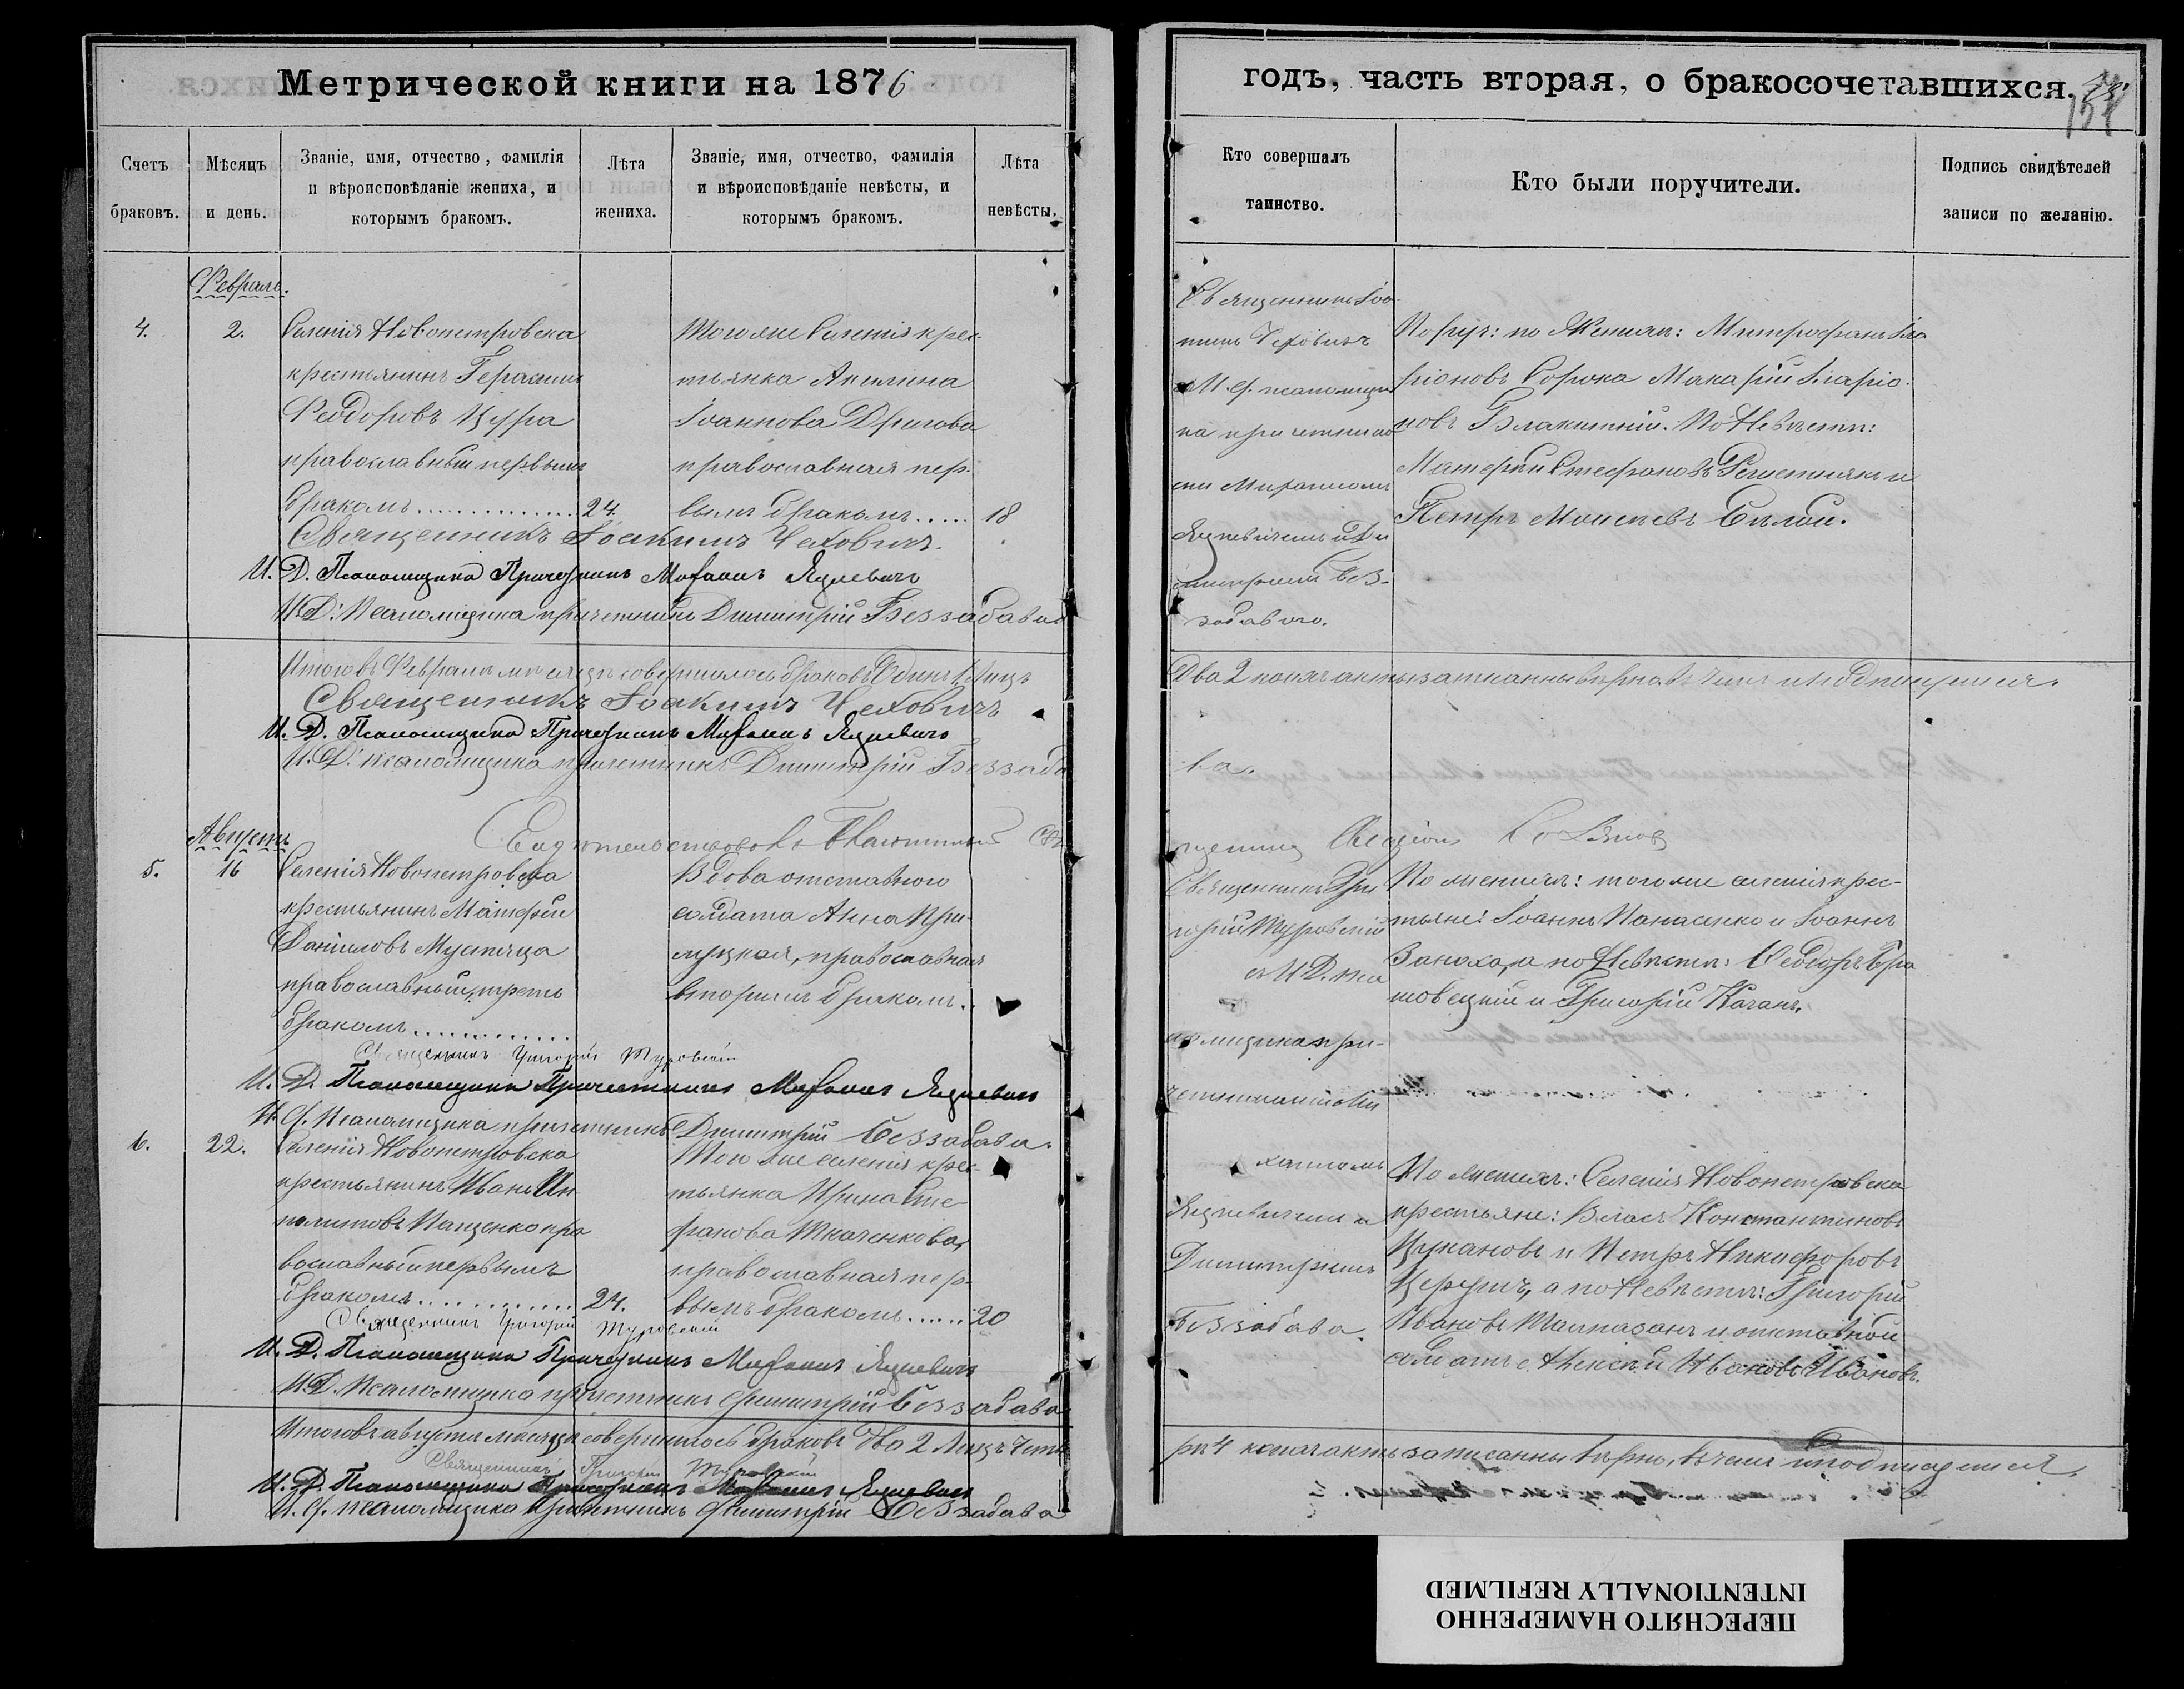 Метрической книги на 1876
годъ, часть вторая, о бракосочетавшихся.
Счетъ браковъ.
Мѣсяцъ и день.
Званіе, имя, отчество, фамилія
и вѣроисповѣданіе жениха, и
которымъ бракомъ.
Лѣта жениха.
Званіе, имя, отчество, фамилія
и вѣроисповѣданіе невѣсты, и
которымъ бракомъ.
Лѣта невѣсты.
Кто совершалъ
таинство.
Кто были поручители.
Подпись свидѣтелей
записи по желанію.
Февраль.
4.
2.
Селенія Новопетровска
крестьянинъ Герасимъ
Феодоровъ Цура
православный первымъ
бракомъ
24.
Того же Селенія крес-
тьянка Акилина
Іоаннова
православная пер-
вымъ бракомъ
18
Священникъ Іоа-
кимъ Чехович
Поруч: по Женихѣ: Митрофанъ Ила-
ріоновъ Сорока Макарій Иларіо-
новъ Блакитній. По Невѣстѣ:
Матфій Стефановъ Решетнякъ и
Петръ Моисѣевъ Бѣлой.
Священникъ Іоакимъ Чеховичъ.
И. Д. Псаломщика Причетникъ Яцкевичъ
И. Д: Псаломщика причетникъ Димитрій Беззабава
Итого въ Февралѣ мѣсяцѣ совершилось браковъ Одинъ 1 Лицъ
Два 2 коихъ акты записанны вѣрно въ чемъ и Подписуемся.
Священникъ Іоакимъ Чеховичъ
И. Д. Псаломщика Причетникъ Яцкевичъ
И. Д. псаломщика причетникъ Димитрій Беззаба
ва.
Августъ
5.
16
Селенія Новопетровска
крестьянинъ Матфей
Даніиловъ Мустяца
православный, треть
бракомъ
Вдова отставного
солдата Анна При-
луцкая, православная
вторымъ бракомъ
Священникъ Гри-
горій Туровскій
с И.Д. пса
ломщика при-
По женихѣ: того же селенія крес-
тьяне: Іоаннъ Панасенко и Іоаннъ
Заноха, а по Невѣстѣ: Феодоръ Бра
товецкій и Григорій Качанъ.
Священникъ Григорій Туровскій
И. Д. Псаломщика Причетникъ Яцкевичъ
И. Д. Псаломщика причетникъ Димитрій Беззабава.
6.
22.
Селенія Новопетровска
крестьянинъ Иванъ Ип-
политовъ Пащенко пра
вославный первымъ
бракомъ
24.
Того же селенія крес-
тьянка Ирина Сте-
фанова Ткаченкова,
православная пер-
вымъ бракомъ
20
Яцкевичемъ и
Димитріемъ
Беззабава.
По женихѣ: Селенія Новопетровска
крестьяне: Власъ Константиновъ
Цукановъ и Петръ Никифоровъ
а по Невѣстѣ: Григорій
Ивановъ и отставной
солдатъ Алексѣй Ивановъ Ивановъ.
Священникъ Григорій Туровскій
И. Д. Псаломщика Причетникъ Яцкевичъ
И. Д. Псаломщика причетникъ Димитрій Беззабава
Итого въ августѣ мѣсяцѣ совершилось браковъ два 2 Лицъ Четы
ре 4 коихъ акты записанны вѣрно, въ чемъ и подписуемся.
Священникъ Григорій Туровскій
И. Д. Псаломщика Причетникъ Яцкевичъ
И. Д. псаломщика причетникъ Димитрій Беззабава
ПЕРЕСНЯТО НАМЕРЕННО
INTENTIONALLY REFILMED